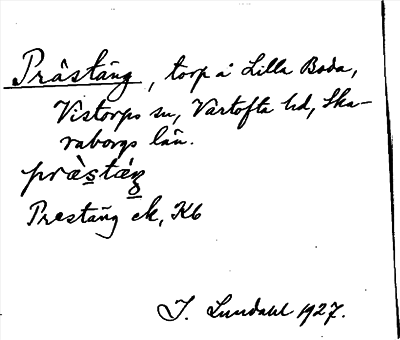 Prästäng, torp å Lilla Boda,
Vistorps sn, Vartofta hd, Ska-
raborgs län.
præ̀stáŋ
Prestäng ek, Kb
I. Lundahl 1927.